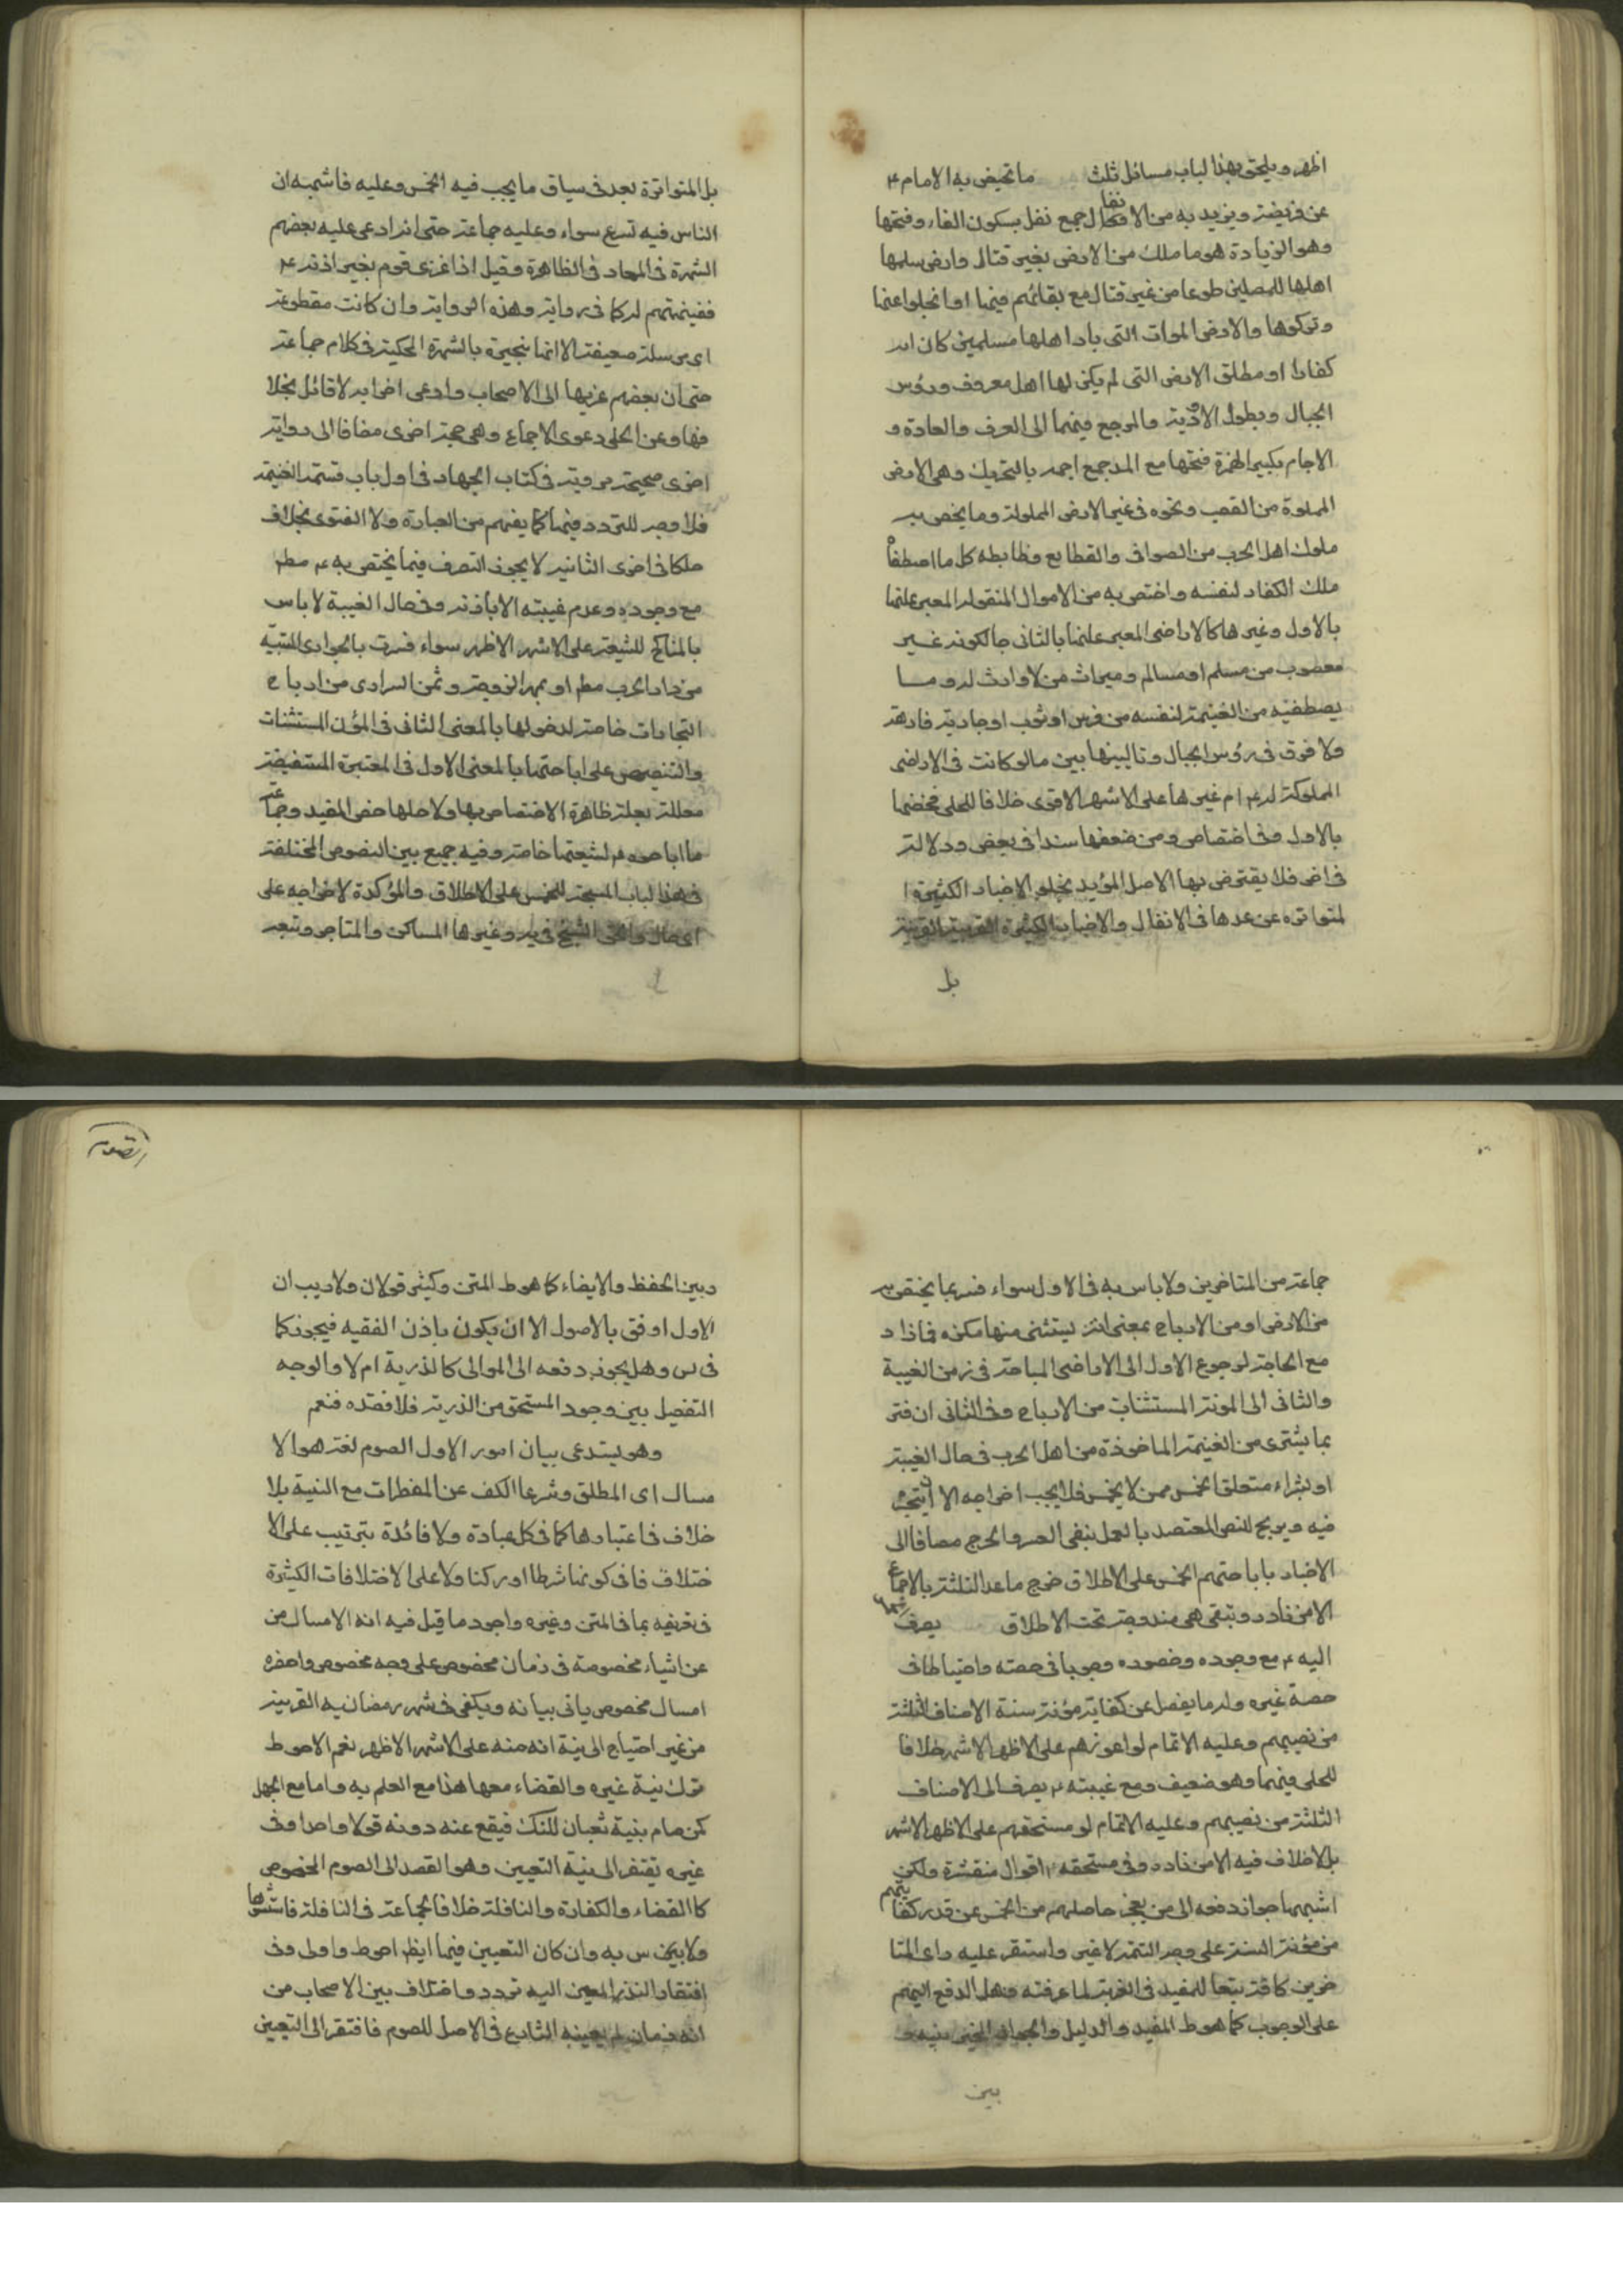 اظهر ويلحق بهذا لباب مسائل ثلث ما تخيض به الامام ع
عن فريضة ويزيد به من الانفال جمع نفل بسكون الفاء وفتحها
وهو الزيادة هو ما ملك من الارض بغير قتال وارض سلمها
اهلها للمسلمين طوعا من غير قتال مع بقائهم فيها او انجلوا عنها
وتركوها والارض الموات التى باد اهلها مسلمين كان ام
كفارا او مطلق الارض التى لم يكن لها اهل معروف ورؤس
الجبال وبطون الاودية والمرجع فيهما الى العرف والعادة و
الاجام بكسر الهمزة فتحها مع المد جمع اجمة بالتحريك وهى الارض
المملوة من القصب ونحوه فى غير الارض المملوكة وما يخص به
ملوك اهل الحرب من الصوافى والقطايع وضابطه كل ما اصطفاه
ملك الكفار لنفسه واختص به من الاموال المنقولة المعبر عنها
بالاول وغيرها كالاراضى المعبر عنها بالثانى حالكونه غير
مغصوب من مسلم او مسالم وميراث من لا وارث له وما
يصطفيه من الغنيمة لنفسه من فرس او ثوب او جارية فارهة
ولا فرق فى رؤس الجبال وتالييها بين ما لو كانت فى الاراضى
المملوكة له ع ام غيرها على الاشهر الاقوى خلافا للحلى فخصها
بالاول وفى اختصاص ومن ضعفها سندا فى بعض ودلالة
فى اخر فلا يقترض بها الاصل المؤيد بخلو الاخبار الكثيرة ا
لمتواتره عن عدها فى الانفال والاخبار الكثيرة القريبة
بل
بل المتواترة بعد فى سياق ما يجب فيه الخمس وعليه فاشبه ان
الناس فيه تسع سواء وعليه جماعة حتى انه ادعى عليه بعضهم
الشهرة فى المعادن الظاهرة وقيل اذا غزى قوم بغير اذنه ع
فغنيمتهم له كما فى رواية وهذه الرواية وان كانت مقطوعة
اى مرسلة ضعيفة الا انها منجبرة بالشهرة المحكية فى كلام جماعة
حتى ان بعضهم عزيها الى الاصحاب وادعى اخر انه لا قائل بخلا
فها وعن الحلى دعوى الاجماع وهى حجة اخرى مضافا الى رواية
اخرى صحيحة مروية فى كتاب الجهاد فى اول باب قسمة الغنيمة
فلا وجه للتردد فيها كما يفهم من العبارة ولا الفتوى بخلاف
ملكا فى اخرى الثانية لا يجوز التصرف فيما يختص به ع مطم
مع وجوده وعدم غيبته الا باذنه وفى حال الغيبة لا باس
بالمناكح للشيعة على الاشهر الاظهر سواء فسرت بالجوارى المسبية
من دار الحرب مطم او بمهر الزوجة وثمن السرارى من ارباح
التجارات خاصة لدخولها بالمعنى الثانى فى المؤن المستثنات
والتنصيص على اباحتها بالمعنى الاول فى المعتبرة المستفيضة
معللة بعلة ظاهرة الاختصاص بها ولاجلها خص المفيد وجماعة
ما اباحوه ع لشيعتها خاصة وفيه جميع بين النصوص المختلفة
فى هذا لباب المبيحة للخمس على الاطلاق والمؤكدة لاخراجه على
اى حال والحق الشيخ فى يه وغيرها المساكن والمتاجر وتبعه
جماعة من المتاخرين ولا باس به فى الاول سواء فسر بما يختص به
من الارض او من الارباح بمعنى انه يستثنى منها مسكن فما زاد
مع الحاجة لرجوع الاول الى الاراضى المباحة فى زمن الغيبة
والثانى الى المؤنة المستثنات من الارباح وفى الثانى ان فتر
بما يشترى من الغنيمة الماخوذة من اهل الحرب فى حال الغيبة
او بشراء متعلق الخمس ممن لا يخمس فلا يجب اخراجه الا ان يتجر
فيه ويربح للنص المعتضد بالعمل بنفى العسر والحرج مضافا الى
الاخبار باباحتهم الخمس على الاطلاق خرج ماعدا الثلثة بالاجماع
الا من نادر وتبقى هى مندرجة تحت الاطلاق يصرف
اليه ع مع وجوده وحضوره وجوبا فى حصته واحتياطا فى
حصة غيره وله ما يفضل عن كفاية مؤنة سنة الاصناف الثلثة
من نصيبهم وعليه الاتمام لو اعوزهم على الاظهر الاشهر خلافا
للحلى فيهما وهو ضعيف ومع غيبته ع يصرف الى الاصناف
الثلثة من نصيبهم وعليه الاتمام لو مستحقهم على الاظهر الاشهر
بلا خلاف فيه الا من نادر وفى مستحقه ع اقوال منتشرة ولكن
اشبهها جواز دفعه الى من يعجز حاصلهم من الخمس عن قدر كفايتهم
من مؤنة السنة على وجه التتمة لا غير واستقر عليه راى المتا
خرين كافة تبعا للمفيد فى الغرية لما عرفته وهل الدفع اليهم
على الوجوب كما هو ط المفيد والدليل والجواز المخير بينه و
بين
الصوم
وبين الحفظ والايصاء كما هو ط المتن وكثير قولان ولا ريب ان
الاول اوفق بالاصول الا ان يكون باذن الفقيه فيجوز كما
فى س وهل يجوز دفعه الى الموالى كالذرية ام لا والوجه
التفصيل بين وجود المستحق من الذرية فلا فقده فنعم
وهو يستدعى بيان امور الاول الصوم لغة هو الا
مساك اى المطلق وشرعا الكف عن المفطرات مع النية بلا
خلاف فى اعتبارها كما فى كل عبادة ولا فائدة بترتيب على الا
ختلاف فانى كونها شرطا او ركنا ولا على الاختلافات الكثيرة
فى تعريفه بما فى المتن وغيره واجود ما قيل فيه انه الامساك من
عن اشياء مخصوصة فى زمان مخصوص على وجه مخصوص واحضره
امساك مخصوص ياتى بيانه ويكفى فى شهر رمضان نيه القربة
من غير احتياج الى نية انه منه على الاشهر الاظهر نعم الاحوط
ترك نية غيره والقضاء معها هذا مع العلم به واما مع الجهل
كمن صام بنية شعبان للشك فيقع عنه دونه قولا واحدا وفى
غيره تفتقر الى نية التعيين وهو القصد الى الصوم المخصوص
كا القضاء والكفارة والنافلة خلافا لجماعة فى النافلة
ولا يخ س به وان كان التعيين فيها ايظ احوط واولى وفى
افتقار النذر المعين اليه تردد واختلاف بين الاصحاب من
انه زمان لم يعينه الشارع فى الاصل للصوم فافتقر الى التعيين